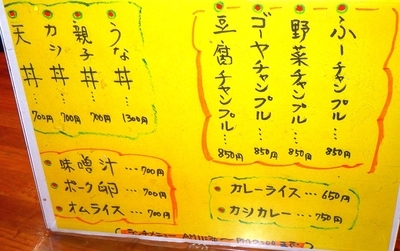 ふーチャンプル…850円
野菜チャンプル…850円
ゴーヤチャンプル…850円
豆腐チャンプル…850円
うな丼…1300円
親子丼…700円
カツ丼…700円
天丼…700円
味噌汁…700円
ポーク卵…700円
オムライス…700円
カレーライス…650円
カツカレー…750円